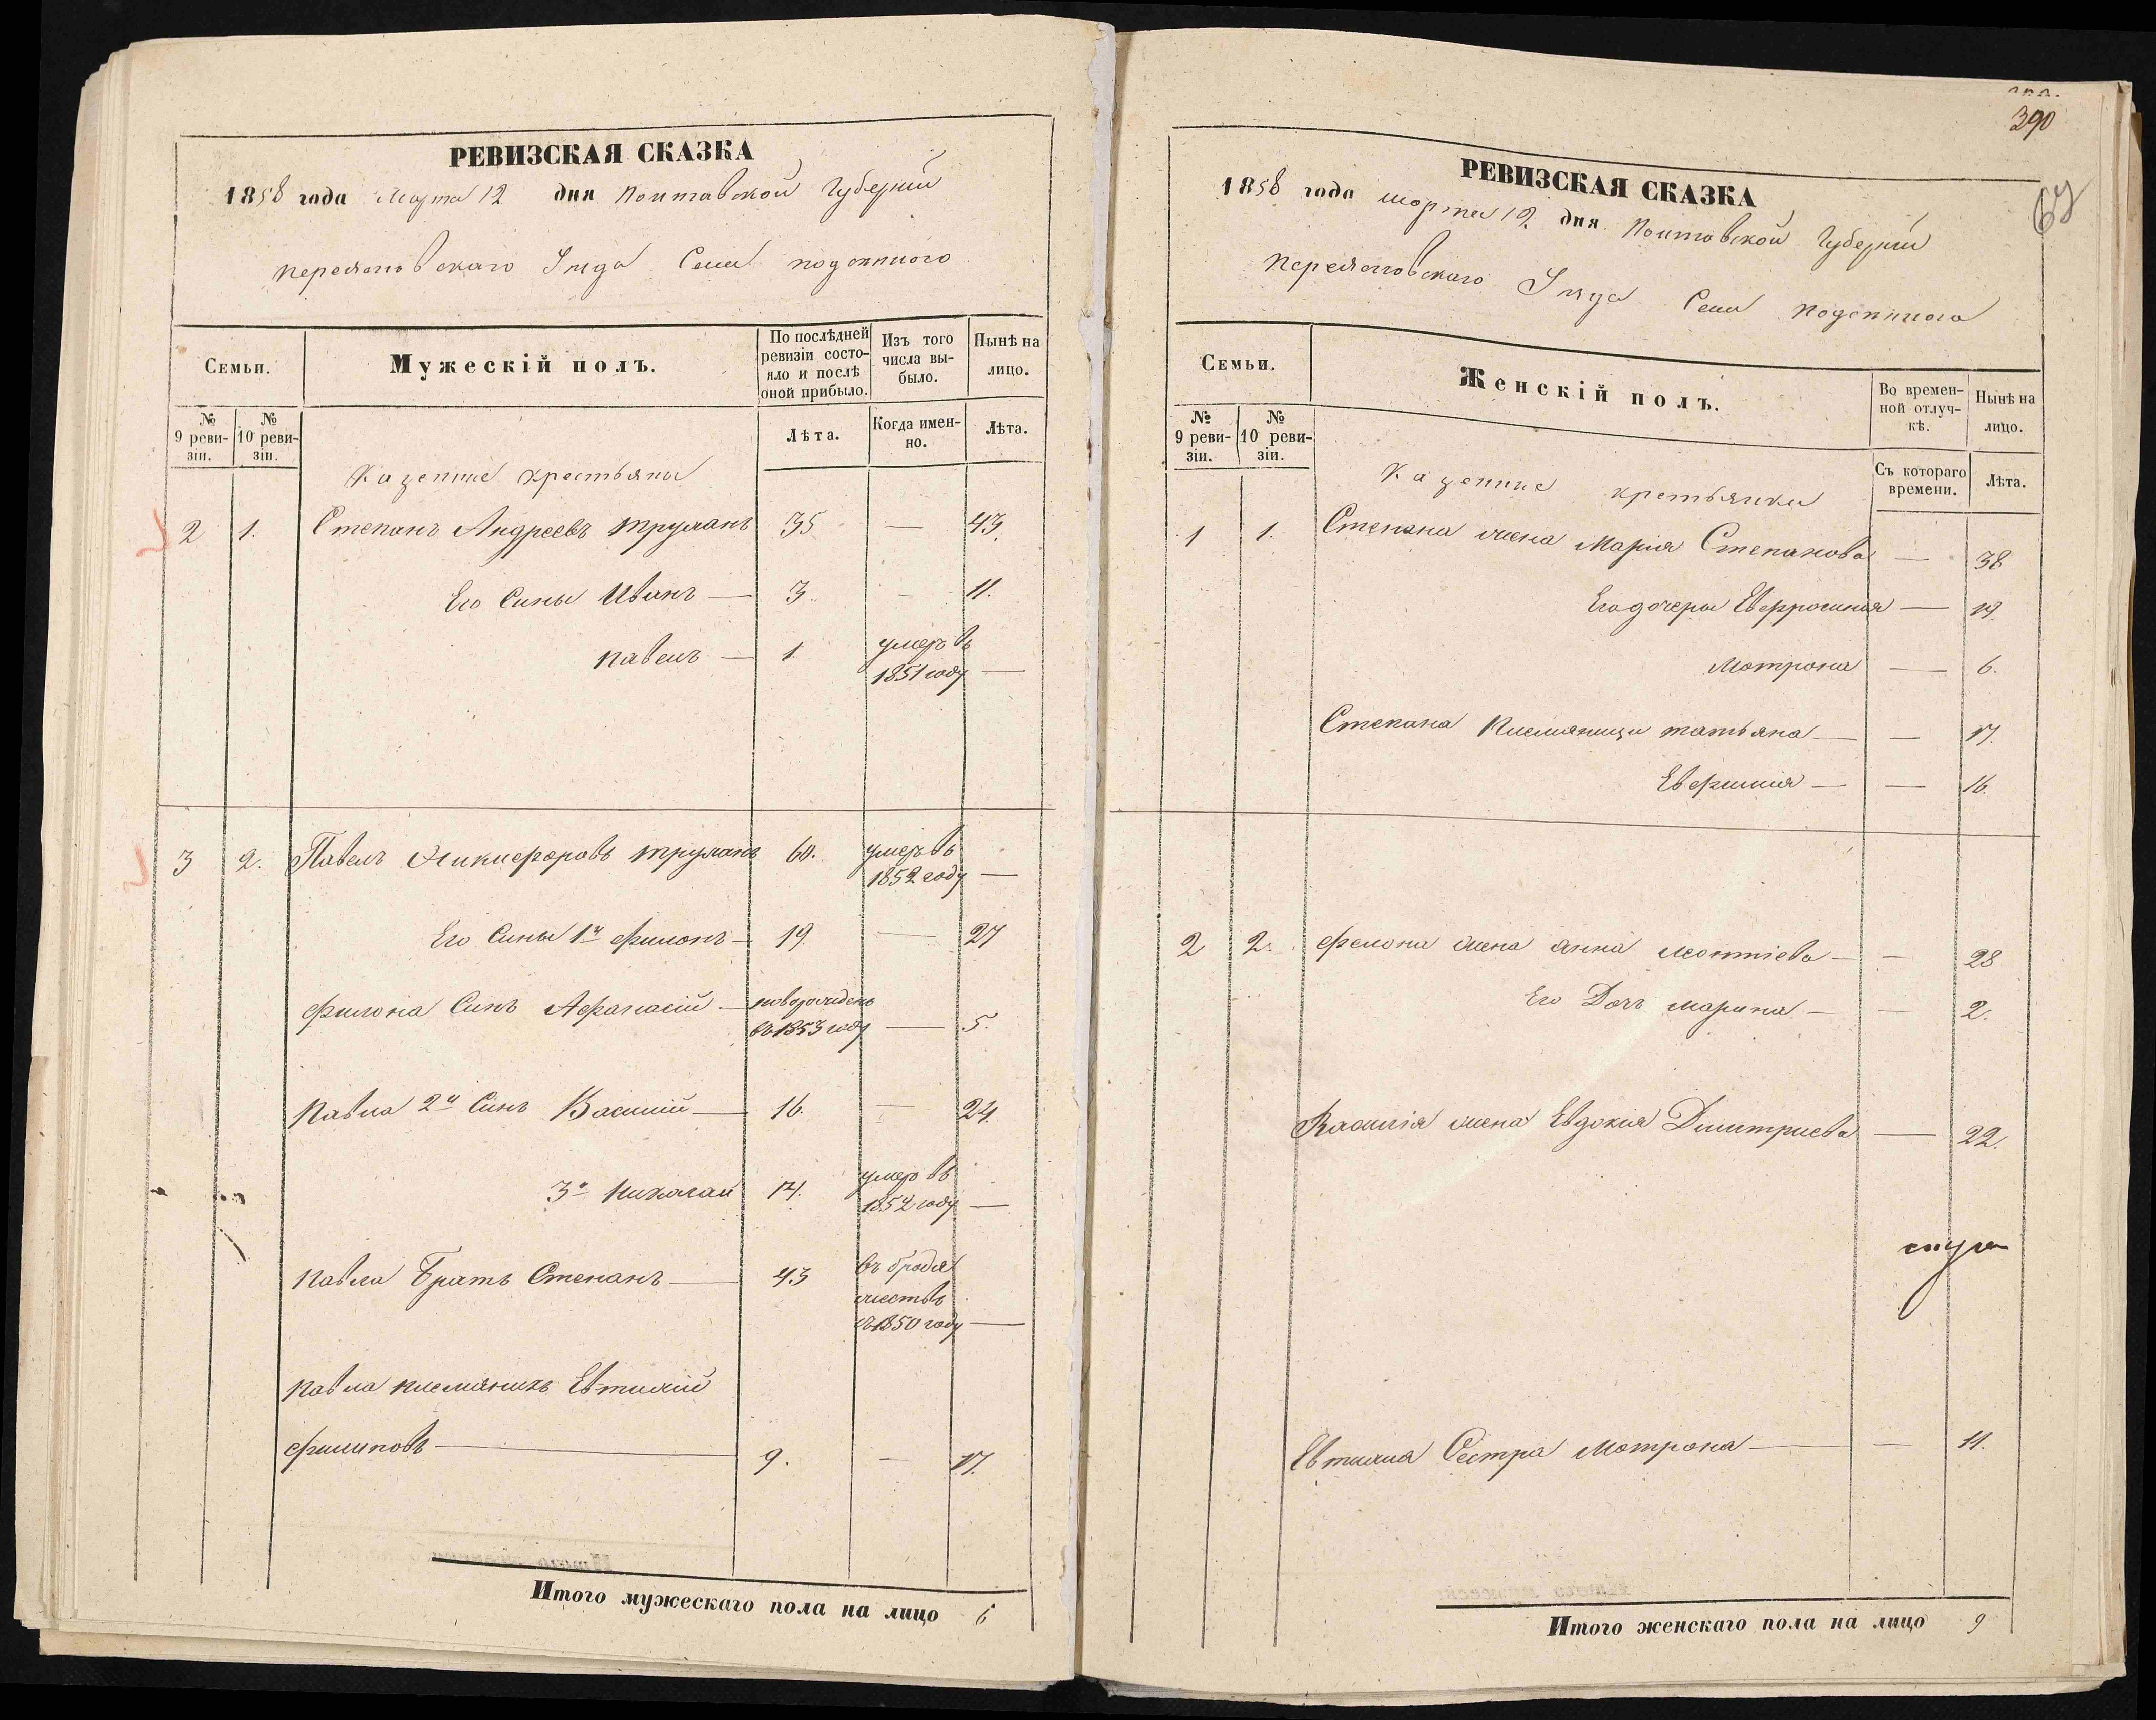 РЕВИЗСКАЯ СКАЗКА
1858 года Марта 12 дня Полтавской Губернии
Переяславскаго Уезда Села подсиннаго
Семьи.
Мужескій полъ.
По послѣдней ревизіи состояло и послѣ оной прибыло.
Изъ того числа выбыло.
Нынѣ на лицо.
№ 9 ревизіи.
№ 10 ревизіи.
Лѣта.
Когда именно.
Лѣта.
Казенние крестьяни
2 1. Степанъ Андреевъ Трушанъ 35 — 43.
Его Сины Иванъ — 3. — 11.
Павелъ — 1. умеръ въ 1851 году —
3 2. Павелъ Никифоровъ Трушанъ 60. умеръ въ 1852 году —
Его Сины 1й Филонъ — 19. — 27
Филона Синъ Афанасій — новорожденъ въ 1853 году — 5.
Павла 2й Синъ Василий — 16. — 24.
3й Николай 14. умер въ 1852 году —
Павла Братъ Степанъ — 43 въ бродяжествѣ съ 1850 году —
Павла племяникъ Евтихий
Филиповъ — 9. — 17.
Итого мужескаго пола на лицо 6
390
67
РЕВИЗСКАЯ СКАЗКА
1858 года марта 12 дня Полтавской Губернии
Переяславскаго Уезда Села подсиннаго
Семьи.
Женскій полъ.
Во временной отлучкѣ.
Нынѣ на лицо.
№ 9 ревизіи.
№ 10 ревизіи.
Съ котораго времени.
Лѣта.
Казенние кретьянки
1 1. Степана жена Марія Степанова — 38
Его дочеры Евфросинія — 19.
Мотрона — 6.
Степана Племяници татьяна — — 17.
Евфимия — — 16.
2 2. Фелона жена анна — — 28
Его Дочъ марина — — 2.
Василія жена Евдокия Димитриева — 22.
Евтихия Сестра Мотрона — — 11.
Итого женскаго пола на лицо 9